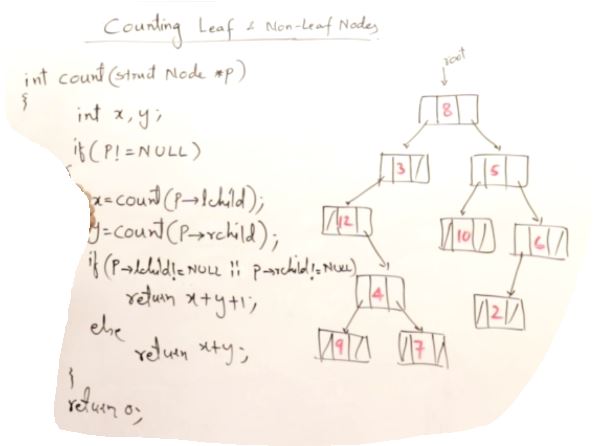 Counting Leaf & Non-Leaf Nodes
int count(struct Node *p)
{
int x, y;
if(P!=NULL)
{
x=count(P→lchild);
y=count(P→rchild);
if(P→lchild!=NULL || p→rchild!=NULL)
return x+y+1;
else
return x+y;
}
return 0;
root
8
3
5
12
10
6
4
2
9
7